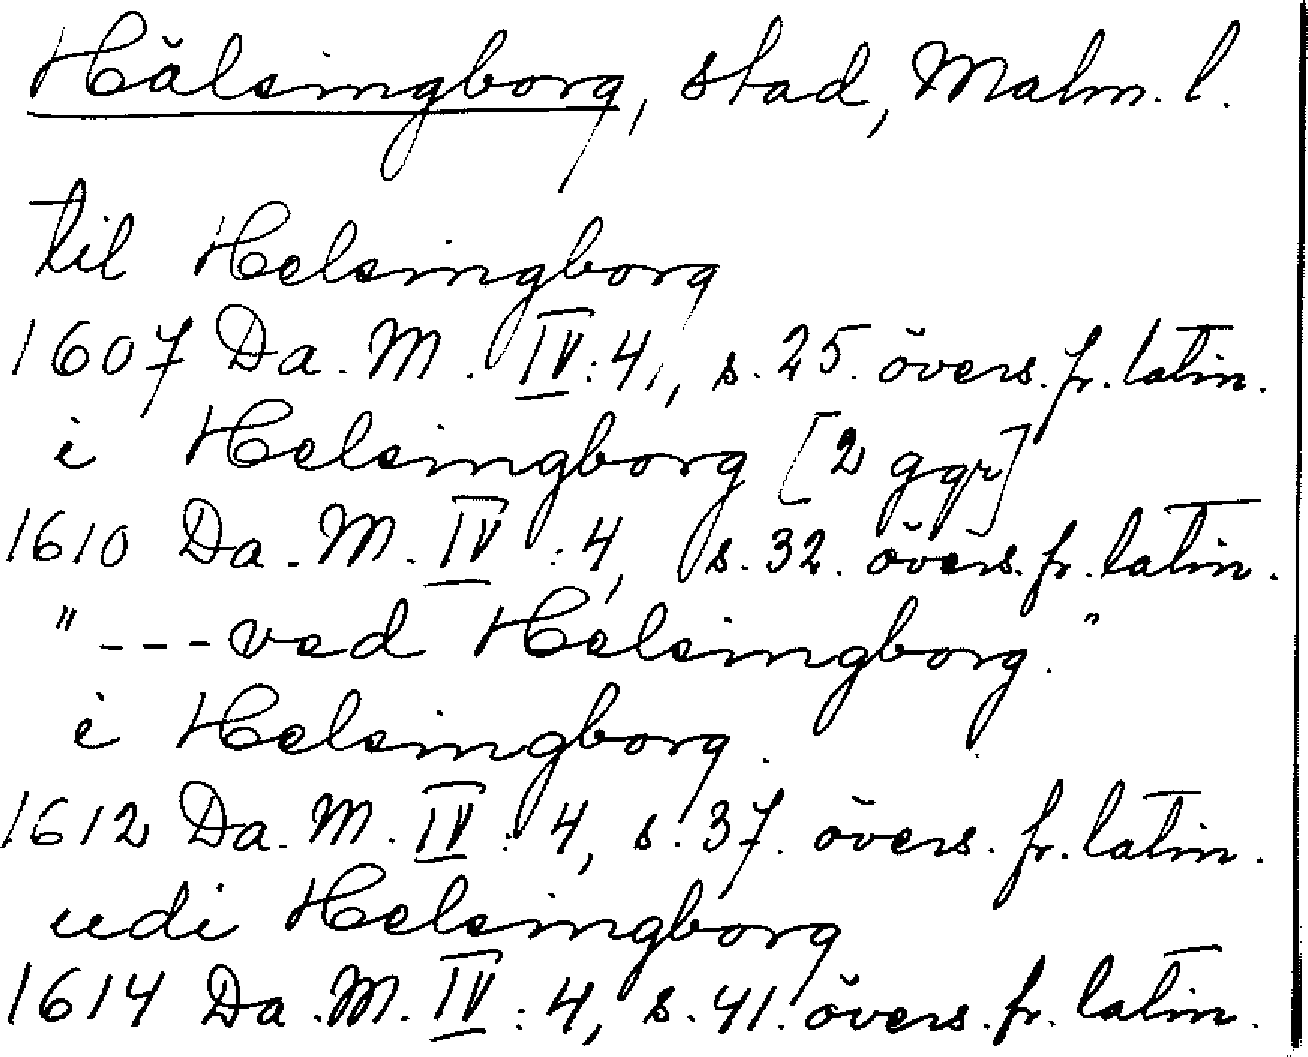 Hälsingborg, stad, Malm. l.
til Helsingborg
1607 Da. M. IV:4, s. 25. övers. fr. latin.
i Helsingborg [2 ggr]
1610 Da. M. IV:4, s. 32. övers. fr. latin.
"---ved Helsingborg."
i Helsingborg.
1612 Da. M. IV:4, s. 37. övers. fr. latin.
udi Helsingborg
1614 Da. M. IV:4, s. 41. övers. fr. latin.